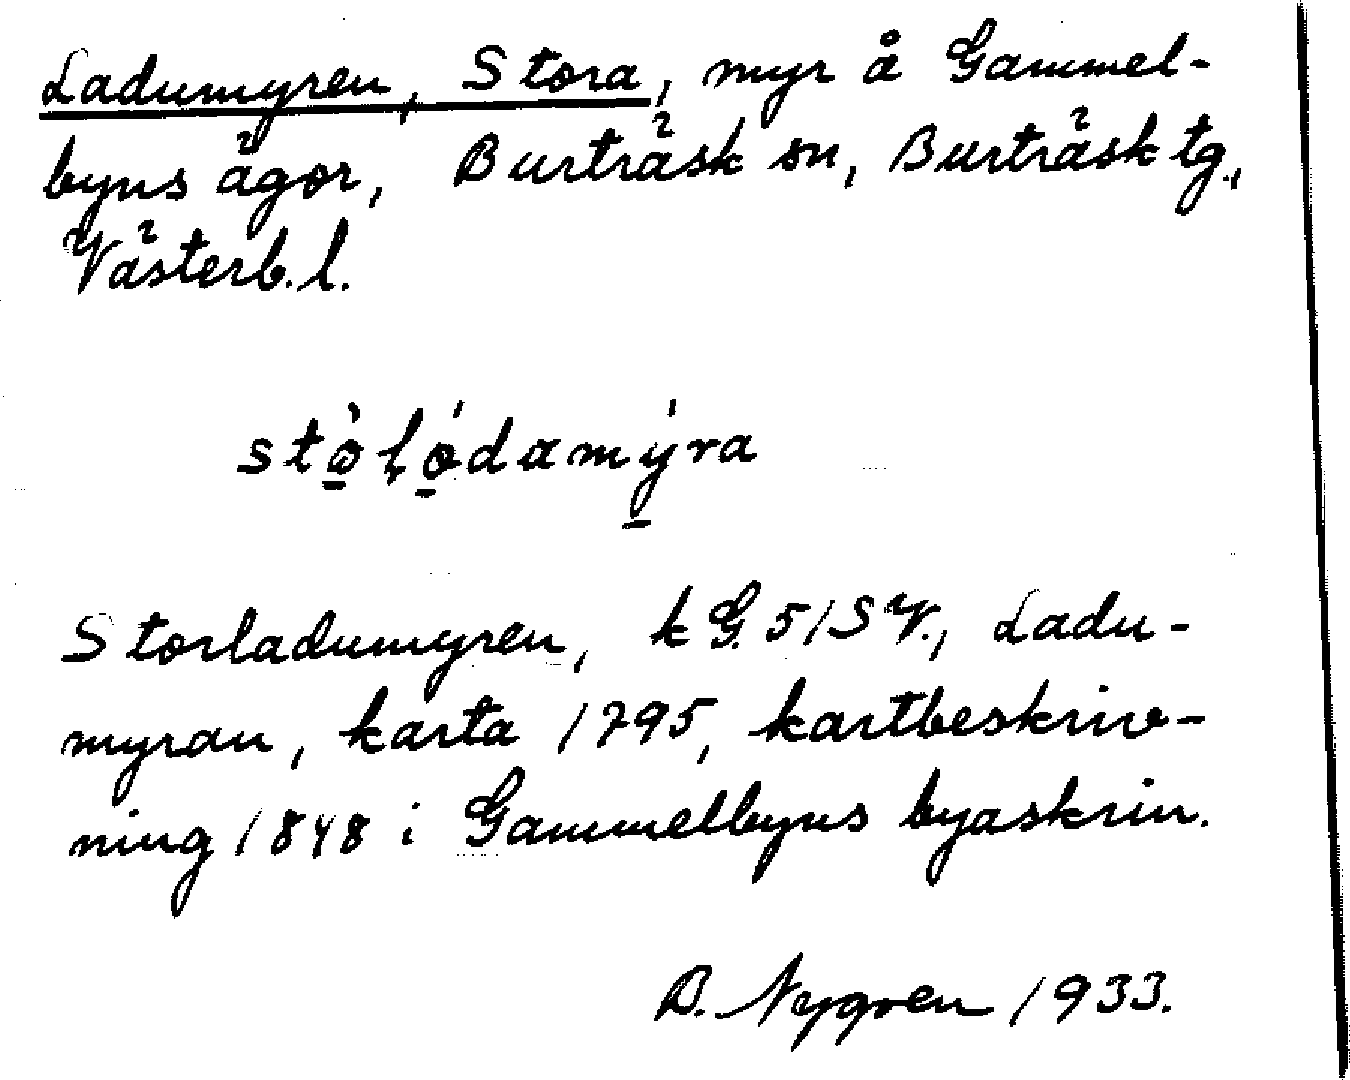 Ladumyren, Stora, myr å Gammel-
byns ägor, Burträsk sn, Burträsk tg.,
Västerb. l.
stò̱ḷó̱damý̱ra
Storladumyren, k G. 5/SV., Ladu-
myran, karta 1795, kartbeskriv-
ning 1848 i Gammelbyns byaskrin.
B. Nygren 1933.